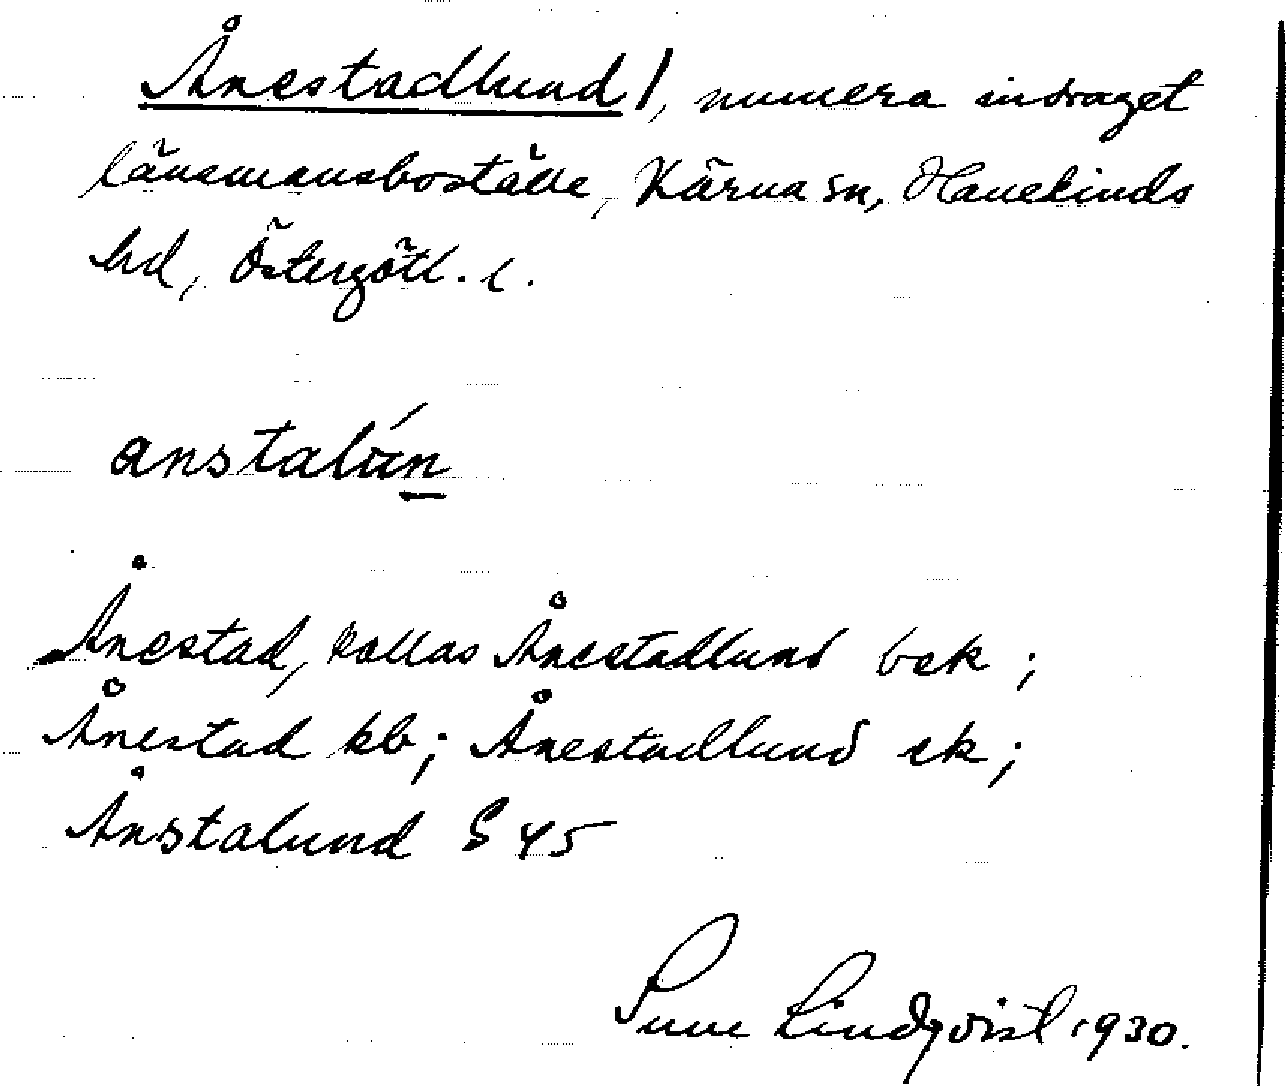 Ånestadlund/, numera indraget
länsmansboställe, Kärna sn, Hanekinds
hd, Östergötl. l.
anstalún
Ånestad, kallas Ånestadlund bek;
Ånestad kb; Ånestadlund ek;
Ånstalund S 45
Sune Lindqvist 1930.